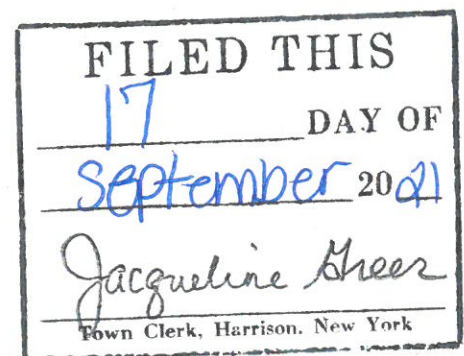 FILED THIS
17 DAY OF
September 2021
Jacqueline Greer
Town Clerk, Harrison. New York